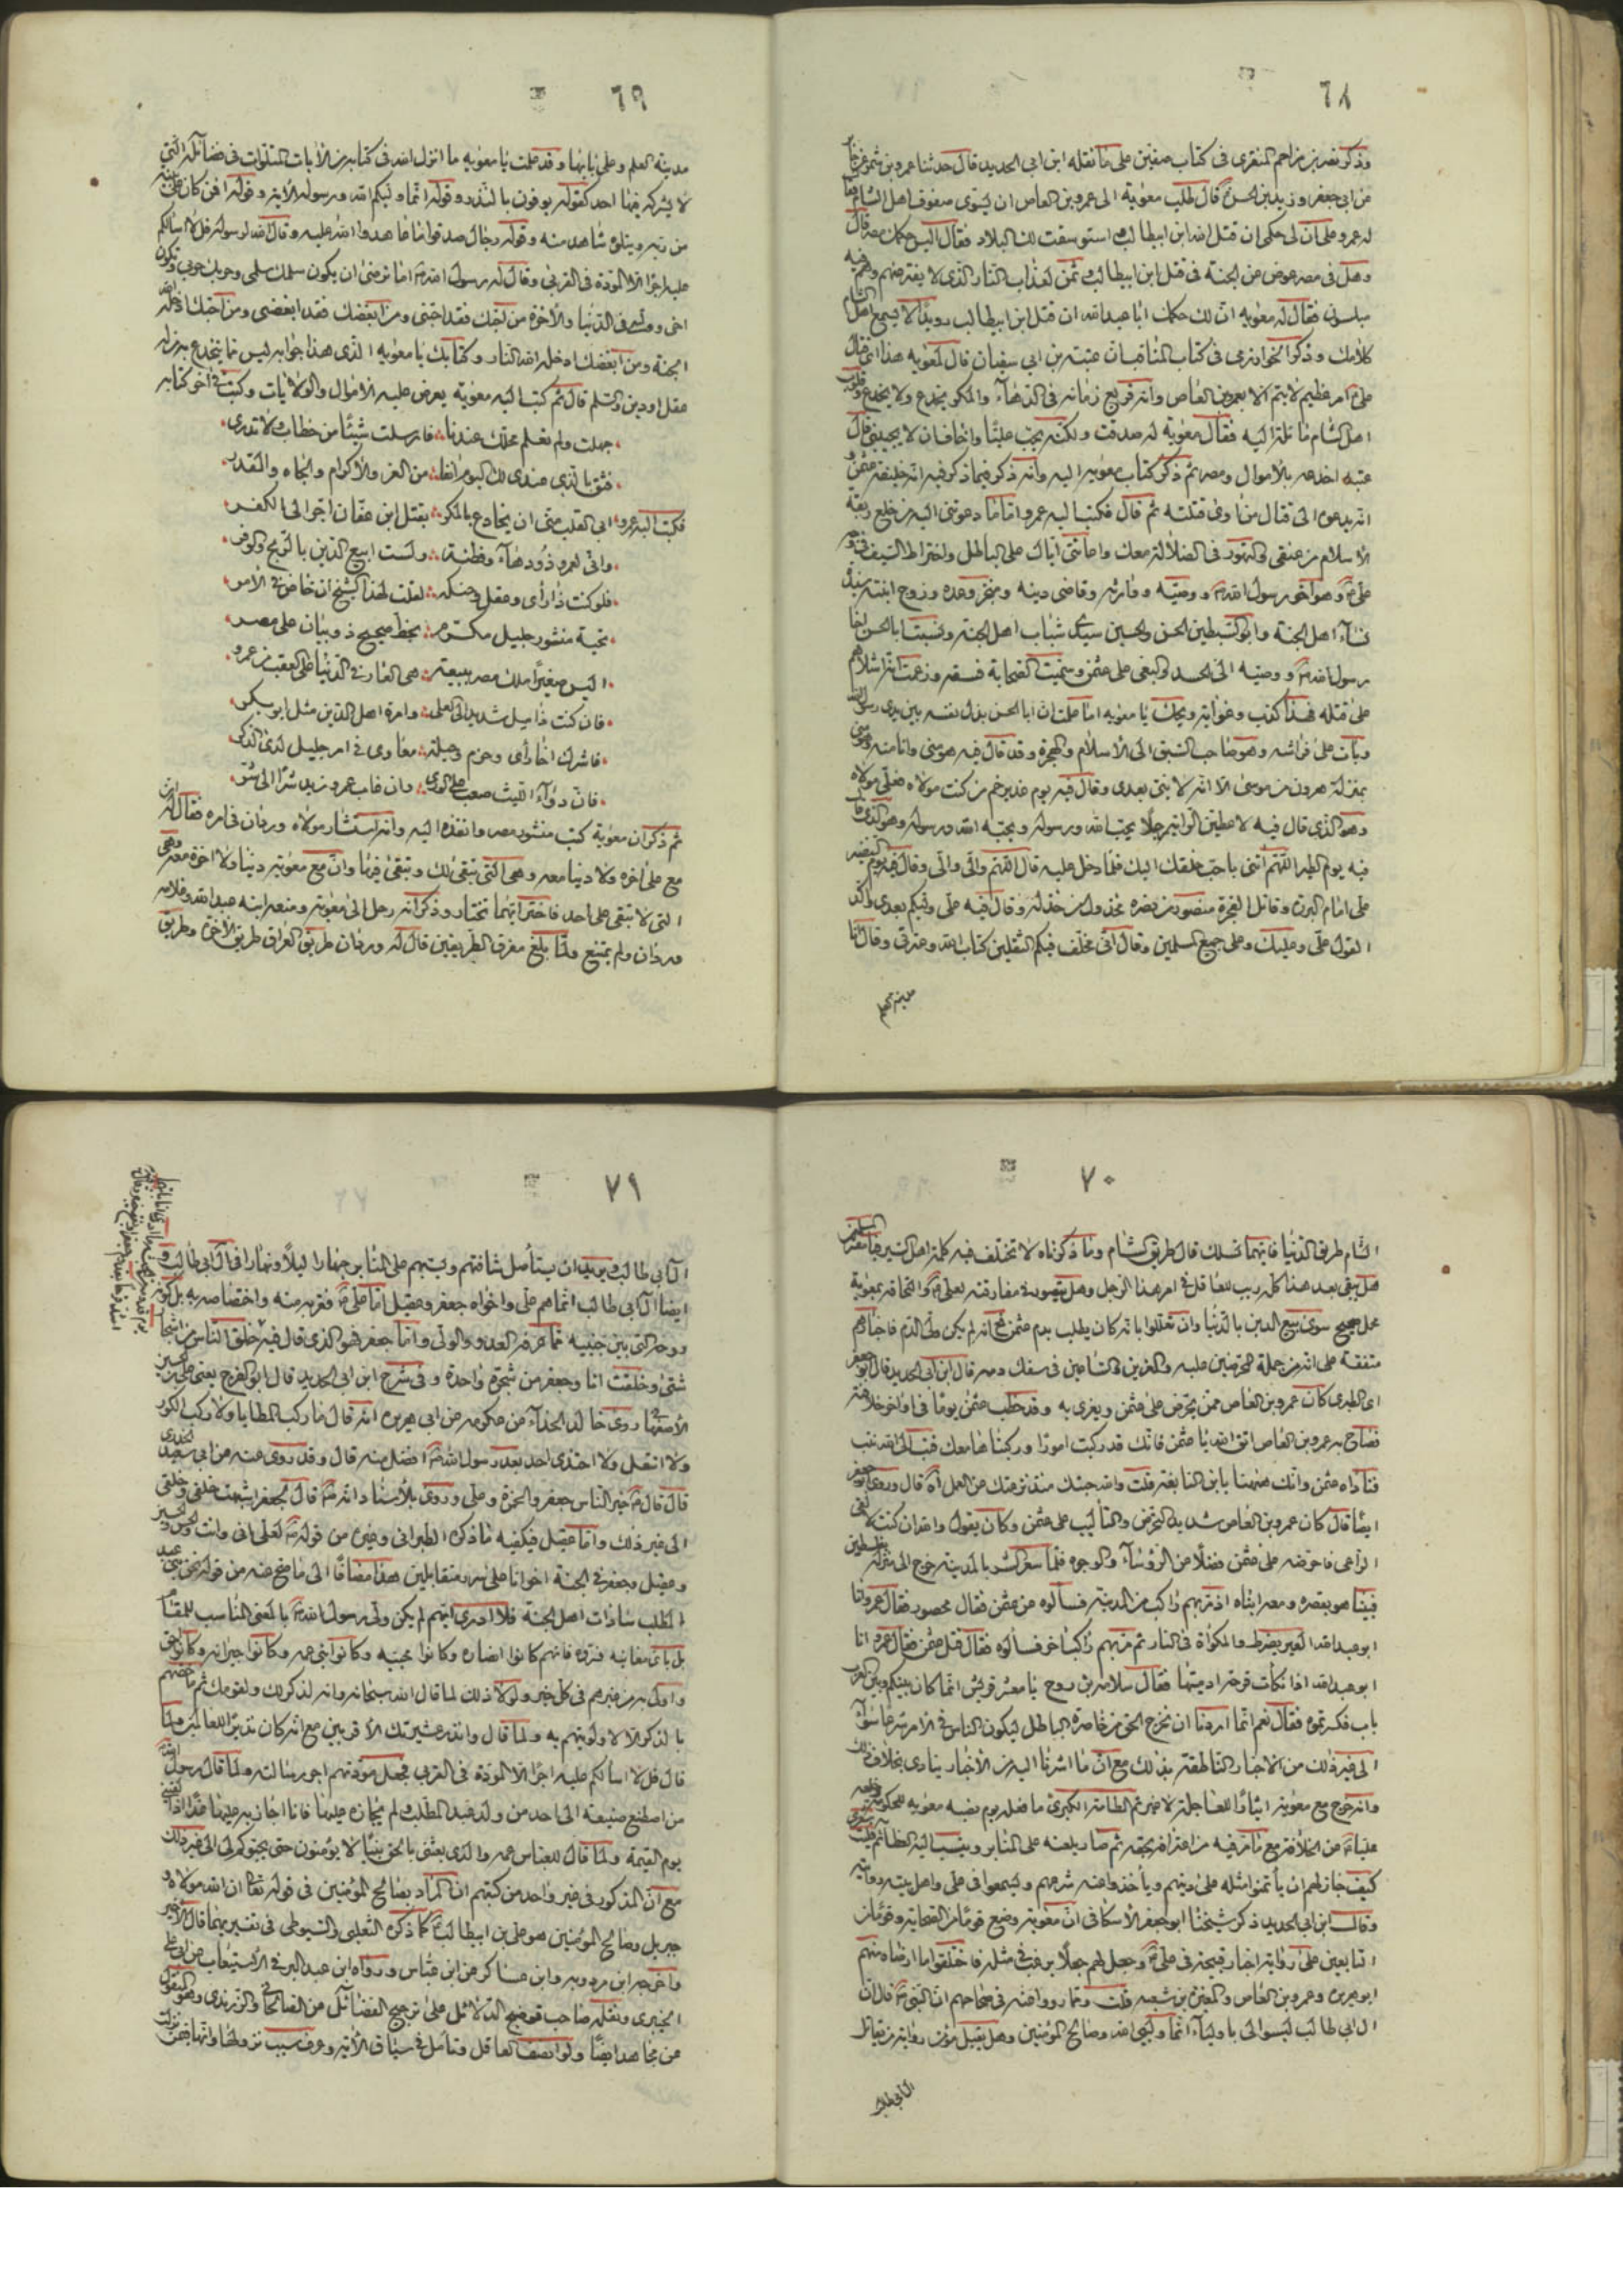 ٦٨
وذكر نصر بن مزاحم المنقرى فى كتاب صفين على ما نقله ابن ابى الحديد قال حدثنا عمرو بن شمر عن جابر
عن ابى جعفر وزيد بن الحسن قال طلب معوية الى عمرو بن العاص ان يسوى صفوف اهل الشام فقال
له عمرو على ان لى حكمى ان قتل الله ابن ابيطالب واستوسقت لك البلاد فقال اليس حكمك مصر قال
وهل فى مصر عوض عن الجنة فى قتل ابن ابيطالب ثمن لعذاب النار الذى لا يفتر عنهم وهم فيه
مبلسون فقال له معويه ان لك حكمك ابا عبد الله ان قتل ابن ابيطالب رويدا لا يسمع اهل الشام
كلامك وذكر الخوارزمى فى كتاب المناقب ان عتبة بن ابى سفيان قال لمعويه هذا
على امر عظيم لا يتم الا بعمرو بن العاص وانه قريع زمانه فى الدهاء والمكر يخدع ولا يخدع وقلوب
اهل الشام مائلة اليه فقال معوية له صدقت ولكنه يحب عليا واخاف ان لا يجيبنى قال
عتبه اخدعه بالاموال ومصر ثم ذكر كتاب معوية اليه وانه ذكر فيما ذكر فيه انه خليفة عثمن
انه يدعوه الى قتال من اوى قتلته ثم قال فكتب اليه عمرو اما ما دعوتنى اليه من خلع ربقة
الاسلام من عنقى والتهور فى الضلالة معك واعانتى اياك على الباطل واختراط السيف فى وجه
على وهو اخو رسول الله ووصيه ووارثه وقاضى دينه ومنجز وعده وزوج ابنته سيدة
نساء اهل الجنة وابو السبطين الحسن والحسين سيدى شباب اهل الجنة ونسبت ابا الحسن اخا
رسول الله ووصيه الى الحسد والبغى على عثمن وسميت الصحابة فسقه وزعمت انه اشلاهم
على قتله فهذا كذب وغواية ويحك يا معويه اما علمت ان ابا الحسن بذل نفسه بين يدى رسول الله
وبات على فراشه وهو صاحب السبق الى الاسلام والهجرة وقد قال فيه هو منى وانا منه وهو منى
بمنزلة هرون من موسى الا انه لا نبى بعدى وقال فيه يوم غدير خم من كنت مولاه فعلى مولاه
وهو الذى قال فيه لاعطين الراية رجلا يحب الله ورسوله ويحبه الله ورسوله وهو الذى قال
فيه يوم الطير اللهم ائتنى باحب خلقك اليك فلما دخل عليه قال اللهم والى والى وقال فيه يوم النضير
على امام البررة وقاتل الفجرة منصور من نصره مخذول من خذله وقال فيه على وليكم بعدى واكد
القول على وعليك وعلى جميع المسلمين وقال انى مخلف فيكم الثقلين كتاب الله وعترتى وقال انا
مدينة العلم
٦٩
مدينة العلم وعلى بابها وقد علمت يا معويه ما انزل الله فى كتابه من الايات المتلوات فى فضائله التى
لا يشركه فيها احد كقوله يوفون بالنذر وقوله انما وليكم الله ورسوله الاية وقوله افمن كان على بينة
من ربه ويتلوه شاهد منه وقوله رجال صدقوا ما عاهدوا الله عليه وقال الله لرسوله قل لا اسالكم
عليه اجرا الا المودة فى القربى وقال له رسول الله اما ترضى ان يكون سلمك سلمى وحربك حربى وتكون
اخى وولى فى الدنيا والاخرة من احبك فقد احبنى ومن ابغضك فقد ابغضنى ومن احبك ادخله الله
الجنة ومن ابغضك ادخله الله النار وكتابك يا معويه الذى هذا جوابه ليس مما ينخدع به من له
عقل او دين والسلم قال ثم كتب اليه معوية يعرض عليه الاموال والولايات وكتب فى اخر كتابه
جهلت ولم تعلم محلك عندنا فارسلت شيئا من خطاب ولا تدرى
فثق بالذى عندى لك اليوم انفا من العز والاكرام والجاه والقدر
فكتب اليه عمرو ابى القلب منى ان يخادع بالمكر بقتل ابن عفان اجر الى الكفر
وانى لعمرو ذو دهاء وفطنة ولست ابيع الدين بالربح والوفر
فلو كنت ذا راى وعقل وحنكة لقلت لهذا الشيخ ان خاض فى الامر
تحية منشور جليل مكرم بخط صحيح ذو بيان على مصر
اليس صغيرا ملك مصر ببيعة هى العار فى الدنيا على العقب من عمرو
فان كنت ذا ميل شديد الى العلى وامرة اهل الدين مثل ابو بكر
فاشرك اخا راى وحزم وحيلة معاوى فى امر جليل لدى الذكر
فان دواء الليث صعب على الورى وان غاب عمرو زيد شرا الى شر
ثم ذكر ان معوية كتب منشور مصر وانفذه اليه وانه استشار مولاه وردان فى امره فقال له ان
مع على اخره ولا دنيا معه وهى التى تبقى لك وتبقى فيها وان مع معوية دنيا ولا اخرة معه وهى
التى لا تبقى على احد فاختر ايهما تختار وذكر انه رحل الى معوية ومنعه ابنه عبد الله وغلامه
وردان ولم يمتنع ولما بلغ مفرق الطريقين قال له وردان طريق العراق طريق الاخرة وطريق
٧٠
الشام طريق الدنيا فايهما تسلك قال طريق الشام وما ذكرناه لا تختلف فيه كلمة اهل السير
هل بقى بعد هذا كله ريب للعاقل فى امر هذا الرجل وهل يتصور فى مفارقته لعلى والتحاقه بمعوية
محمل صحيح سوى بيع الدين بالدنيا وان تعللوا بانه كان يطلب بدم عثمن مع انه لم يكن ولى الدم فاخبارهم
متفقة على انه من جملة المحرضين عليه والمغرين والساعين فى سفك دمه قال ابن ابى الحديد قال ابو جعفر
اى الطبرى كان عمرو بن العاص ممن يحرض على عثمن ويغرى به وقد خطب عثمن يوما فى اواخر خلافته
فصاح به عمرو بن العاص اتق الله يا عثمن فانك قد ركبت امورا وركبناها معك فتب الى الله نتب
فناداه عثمن وانك ههنا يا بن النابغة قملت والله جبتك منذ نزعتك عن العمل قال وروى ابو جعفر
ايضا قال كان عمرو بن العاص شديد التحريض والتاليب على عثمن وكان يقول والله ان كنت لالقى
الراعى فاحرضه على عثمن فضلا من الرؤساء والوجوه فلما سعر الشر بالمدينة خرج الى منزله بفلسطين
فبينا هو بقصره ومعه ابناه اذ مر بهم راكب من المدينة فسالوه عن عثمن فقال محصور فقال عمرو انا
ابو عبد الله العير يضرط والمكواة فى النار ثم مر بهم راكب اخر فسالوه فقال قتل عثمن فقال عمرو انا
ابو عبد الله اذا نكات قرحة ادميتها فقال سلامة بن روح يا معشر قريش انما كان بينكم وبين العرب
باب فكسرتموه فقال نعم انما اردنا ان نخرج الحق من خاصرة الباطل ليكون الناس فى الامر شرعا سواء
الى غير ذلك من الاخبار الناطقة بذلك مع ان ما اشرنا اليه من الاخبار ينادى بخلاف ذلك
وانه خرج مع معوية ايثارا للعاجلة لا غير ثم الطامة الكبرى ما فعله يوم نصبه معويه للحكومة وخلعه
عليا عن الخلافة مع مامر فيه من اعترافه بحقه ثم صار يلعنه على المنابر وينسب اليه العظائم
كيف جاز لهم ان ياتمنوا مثله على دينهم وياخذوا عنه شرعهم ويسمعوا فى على واهل بيته روايته
وقال ابن ابى الحديد ذكر شيخنا ابو جعفر الاسكافى ان معوية وضع قوما من الصحابة وقوما من
التابعين على رواية اخبار قبيحة فى على وجعل لهم جعلا يرغب فى مثله فاختلقوا ما ارضاه منهم
ابو هريره وعمرو بن العاص والمغيرة بن شعبه قلت ومما رووا عنه فى صحاحهم ان النبى قال ان
ال ابى طالب ليسوا لى باولياء انما وليى الله وصالح المؤمنين وهل يقبل مؤمن رواية من يقاتل
٧١
ال ابى طالب يريد ان يستاصل شافتهم ويسبهم على المنابر جهارا ليلا ونهارا فى ال ابى طالب
ايضا ال ابى طالب انما هم على واخواه جعفر وعقيل اما على فقربه منه واختصاصه به بل كونه
روحه التى بين جنبيه مما عرفه العدو والولى واما جعفر فهو الذى قال فيه خلق الناس من اشجار
شتى وخلقت انا وجعفر من شجرة واحدة وفى شرح ابن ابى الحديد قال ابو الفرج يعنى على بن الحسين
الاصفهانى روى خالد الحذاء عن عكرمه عن ابى هريره انه قال ما ركب المطايا ولا ركب الكور
ولا انتعل ولا احتذى احد بعد رسول الله افضل منه قال وقد روى عنه عن ابى سعيد الخدرى
قال قال خير الناس جعفر والحمزة وعلى وروى بالاسناد انه قال لجعفر اشبهت خلقى وخلقى
الى غير ذلك واما عقيل فيكفيه ما ذكره الطبرانى وغيره من قوله لعلى انى وانت والحسن والحسين
وعقيل وجعفر فى الجنة اخوانا على سرر متقابلين هذا مضافا الى ما صح عنه من قوله نحن بنى عبد
المطلب سادات اهل الجنة فلا ادرى ايهم لم يكن ولى رسول الله بالمعنى المناسب للمقام
بل باى معانيه فتره فانهم كانوا انصاره وكانوا محبيه وكانوا بنى عمه وكانوا جيرانه وكانوا احق
واولى به من غيرهم فى كل خير ولولا ذلك لما قال الله سبحانه وانه لذكر لك ولقومك ثم خصهم
بالذكر لا لاولويتهم به ولما قال وانذر عشيرتك الاقربين مع انه كان نذيرا للعالمين
قال قل لا اسالكم عليه اجرا الا المودة فى القربى فجعل مودتهم اجر رسالته ولما قال رسول الله
من اصطنع صنيعه الى احد من ولد عبد المطلب ولم يجازه عليها فانا اجازيه عليها غدا اذا لقينى
يوم القيمة ولما قال للعباس عمه والذى بعثنى بالحق نبيا لا يؤمنون حتى يحبوكم لى الى غير ذلك
مع ان المذكور فى غير واحد من كتبهم ان المراد بصالح المؤمنين فى قوله تعالى ان الله مولاه و
جبريل وصالح المؤمنين هو على بن ابيطالب كما ذكره الثعلبى والسيوطى فى تفسيريهما قال الاخير
واخرجه ابن مردويه وابن عساكر عن ابن عباس ورواه ابن عبد البر فى الاستيعاب عن ابى على
الجبيرى ونقله صاحب توضيح الدلائل على ترجيح الفضائل عن الصالحانى والزرندى وهو المنقول
عن مجاهد ايضا ولو انصف العاقل وتامل فى سياق الاية وعرف سبب نزولها وانها فيمن نزلت